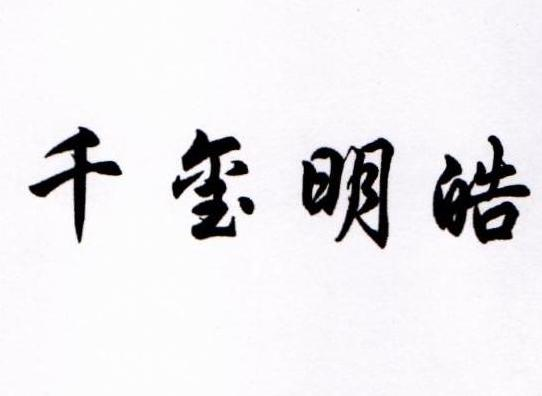 千玺明皓